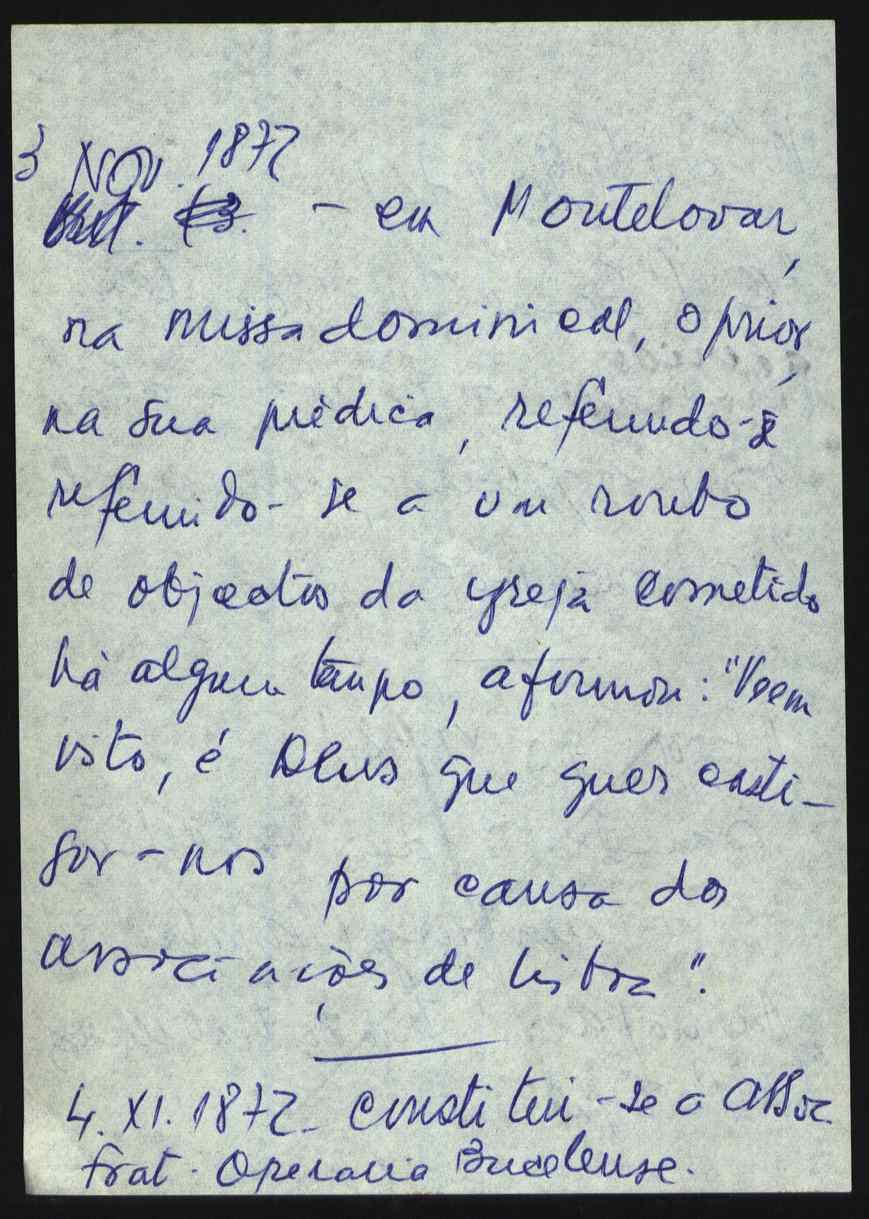 3 NOV. 1872
– em Montelavar,
na missa dominical, o prior,
na sua prédica, referindo-se
referindo-se a um roubo
de objectos da igreja cometido
há algum tempo, afirmou: "Veem
isto, é Deus que quer casti-
gar-nos por causa das
associações de Lisboa".
4. XI. 1872 – Constitui-se a Assoc.
Frat. Operaria Bucelense.